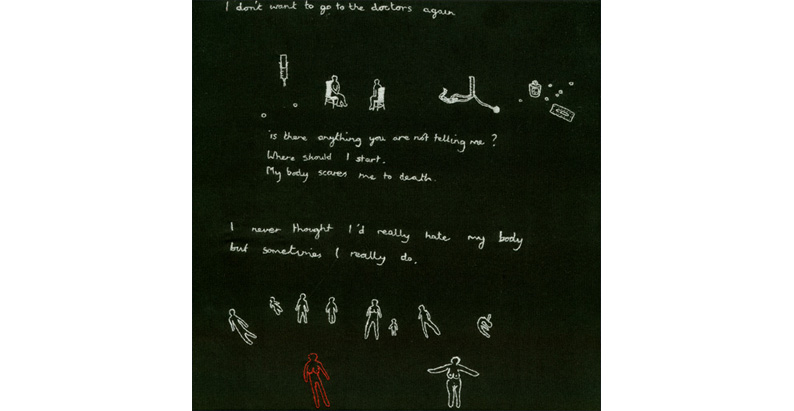 I don't want to go to the doctors again
is there anything you are not telling me?
Where should I start.
My body scares me to death.
I never thought I'd really hate my body
but sometimes I really do.